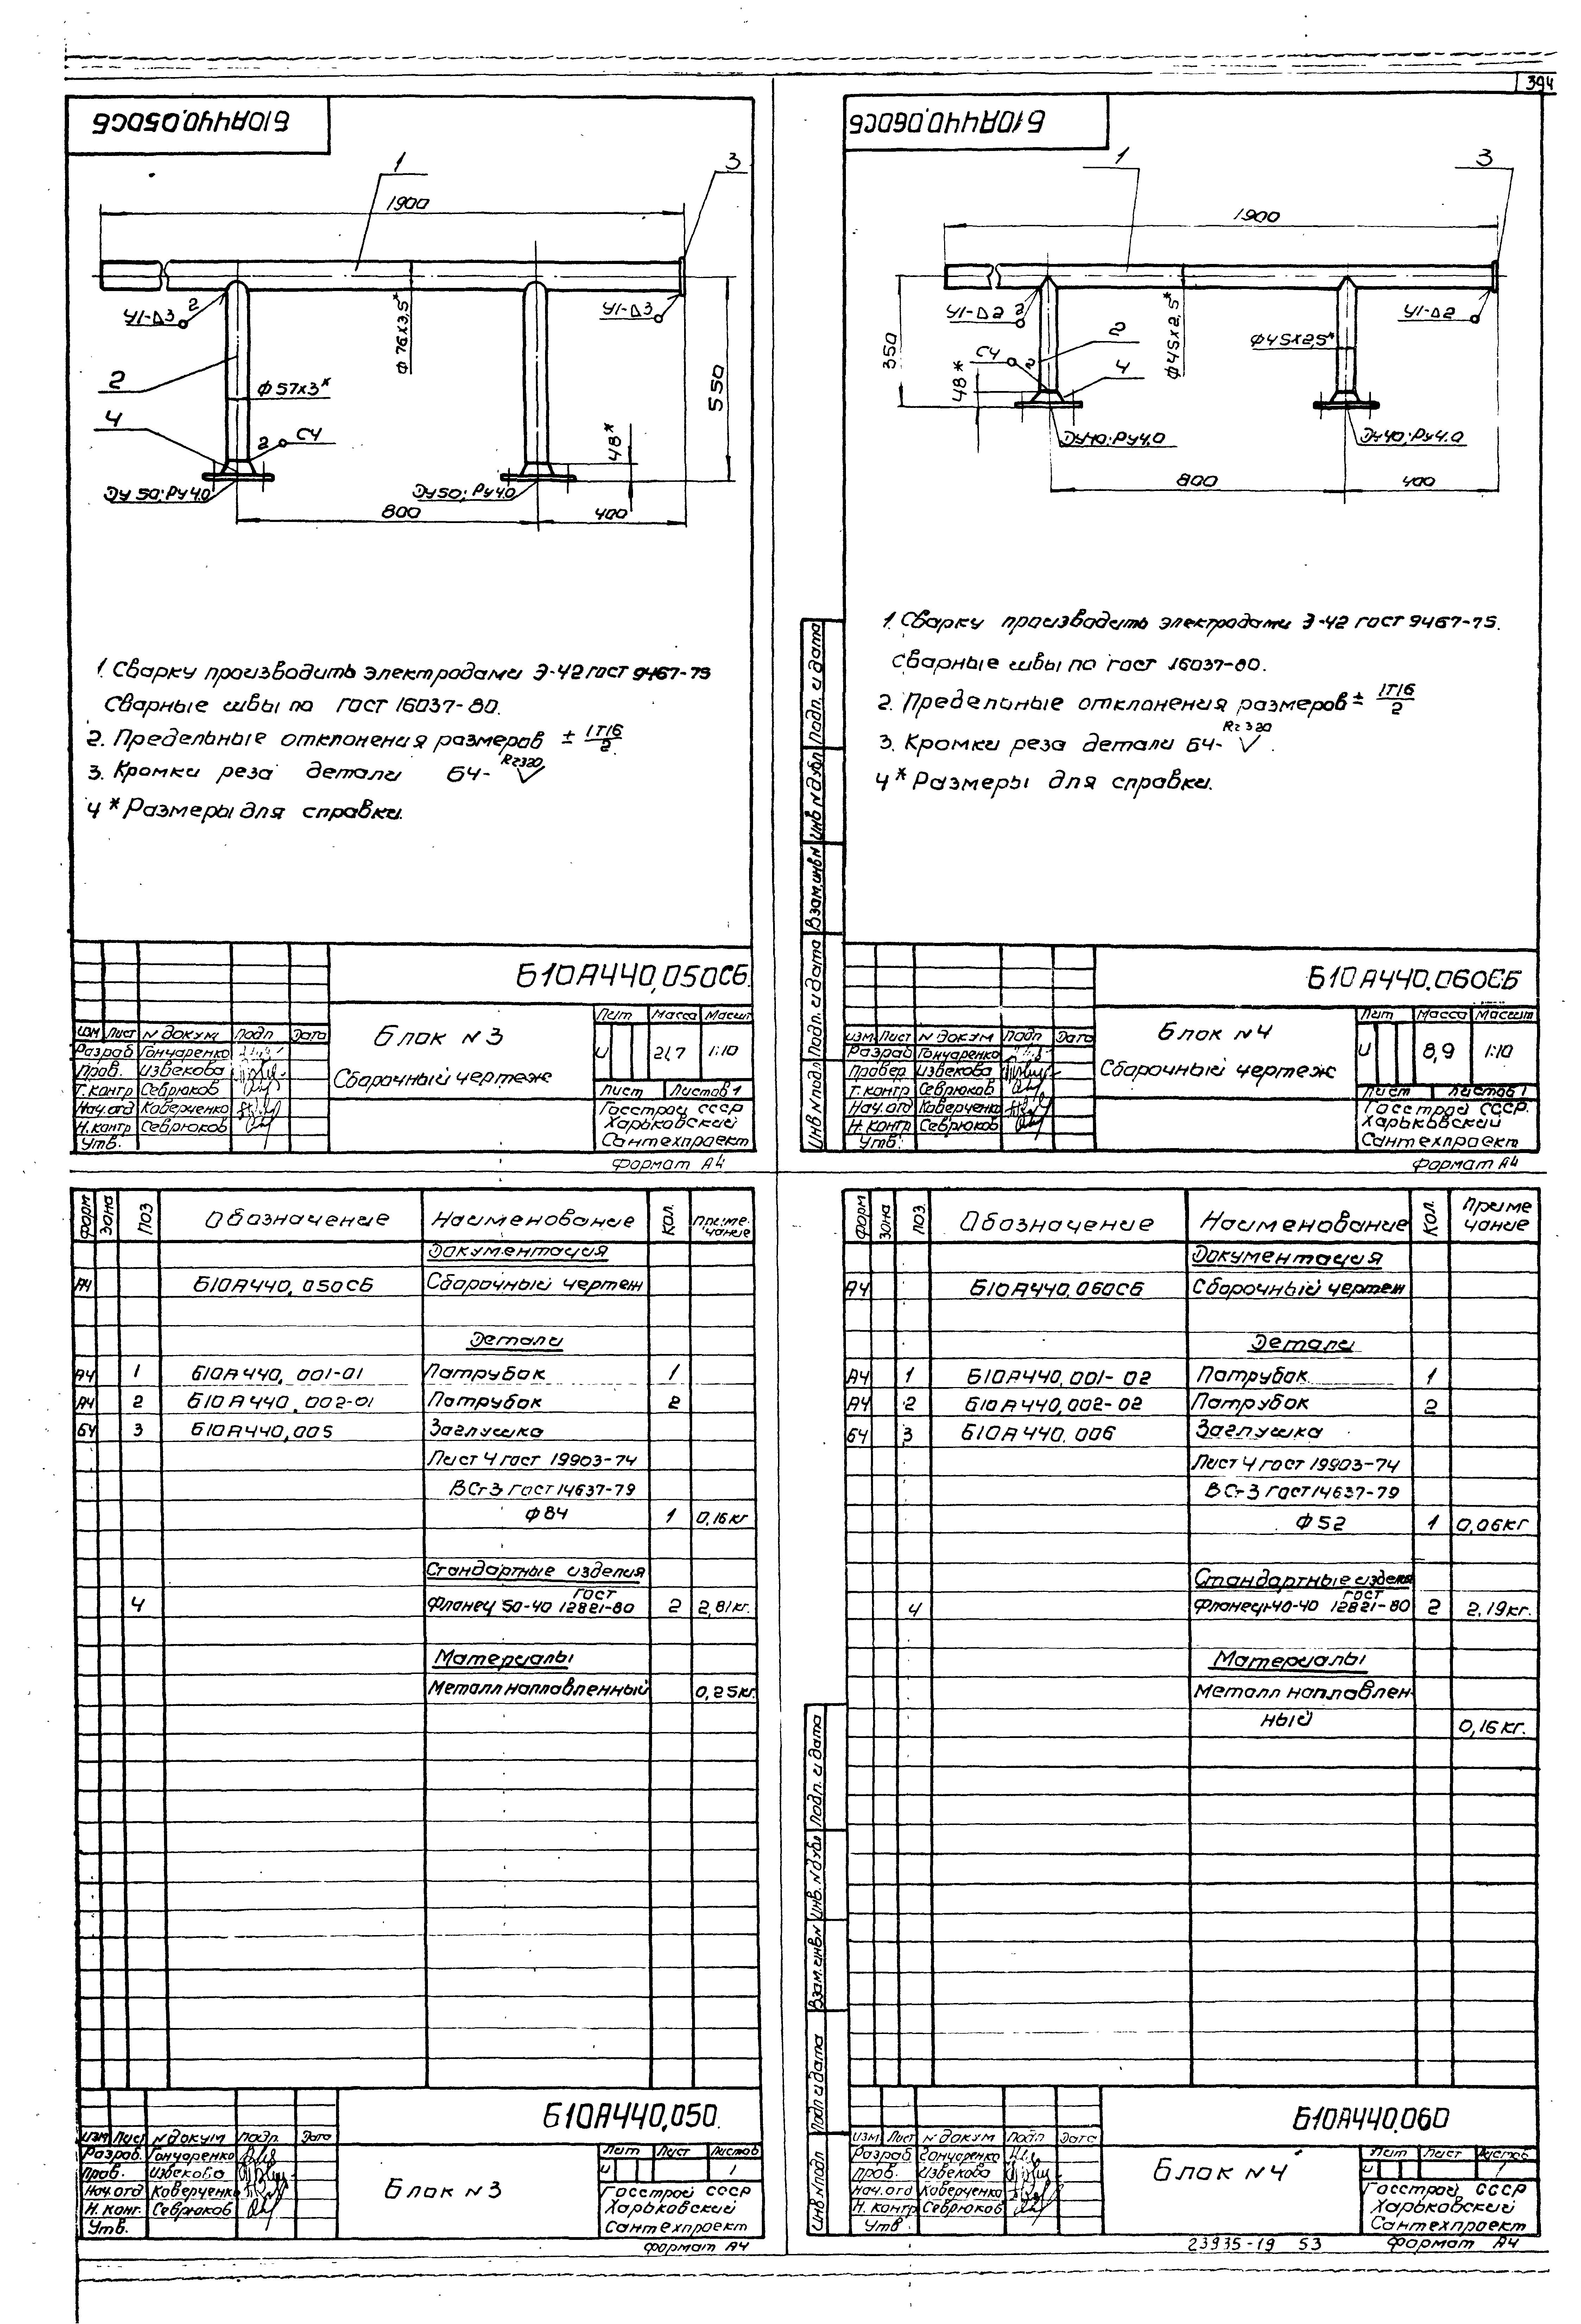 394
Б10А440.050СБ
1
3
1900
У1-Δ3
2
У1-Δ3
Ф76х3,5*
2
Ф57х3*
550
4
2
С4
48*
Ду50; Ру4.0
Ду50; Ру4.0
800
400
1. Сварку производить электродами Э-42 ГОСТ 9467-75
Сварные швы по ГОСТ 16037-80.
2. Предельные отклонения размеров ± IT16/2
3. Кромки реза детали БЧ- Rz320
4 * Размеры для справки.
Б10А440.050СБ
Изм Лист N докум Подп Дата
Разраб Гончаренко
Пров. Извекова
Т.контр Севрюков
Нач.отд Коверченко
Н.контр Севрюков
Утв.
Блок N3
Сборочный чертеж
Лит Масса Масшт
И 21,7 1:10
Лист Листов 1
Госстрой СССР
Харьковский
Сантехпроект
Формат А4
Б10А440.060СБ
1
3
1900
У1-Δ2
2
У1-Δ2
350
Ф45х2,5*
Ф45х2,5*
2
С4
2
4
48*
Ду40; Ру4.0
Ду40; Ру4.0
800
400
1. Сварку производить электродами Э-42 ГОСТ 9467-75.
Сварные швы по ГОСТ 16037-80.
2. Предельные отклонения размеров ± IT16/2
3. Кромки реза детали БЧ- Rz320
4 * Размеры для справки.
Подп. и дата
Инв N дубл
Взам.инв N
Подп. и дата
Инв N подл
Б10А440.060СБ
Изм Лист N докум Подп Дата
Разраб Гончаренко
Провер Извекова
Т.контр Севрюков
Нач.отд Коверченко
Н.контр Севрюков
Утв.
Блок N4
Сборочный чертеж
Лит Масса Масшт
И 8,9 1:10
Лист Листов 1
Госстрой СССР.
Харьковский
Сантехпроект
Формат А4
Форм Зона Поз Обозначение Наименование Кол. Приме-чание
Документация
А4 Б10А440.050СБ Сборочный чертеж
Детали
А4 1 Б10А440.001-01 Патрубок 1
А4 2 Б10А440.002-01 Патрубок 2
БЧ 3 Б10А440.005 Заглушка
Лист 4 ГОСТ 19903-74
ВСт3 ГОСТ 14637-79
Ф84 1 0,16кг
Стандартные изделия
4 Фланец 50-40 ГОСТ 12821-80 2 2,81кг.
Материалы
Металл наплавленный 0,25кг.
Б10А440.050.
Изм Лист N докум Подп. Дата
Разраб. Гончаренко
Пров. Извекова
Нач.отд Коверченко
Н. конт. Севрюков
Утв.
Блок N3
Лит Лист Листов
И 1
Госстрой СССР
Харьковский
Сантехпроект
Формат А4
Форм Зона Поз. Обозначение Наименование Кол. Приме чание
Документация
А4 Б10А440.060СБ Сборочный чертеж
Детали
А4 1 Б10А440.001-02 Патрубок 1
А4 2 Б10А440.002-02 Патрубок 2
БЧ 3 Б10А440.006 Заглушка
Лист 4 ГОСТ 19903-74
ВСт3 ГОСТ 14637-79
Ф52 1 0,06кг
Стандартные изделия
4 Фланец 40-40 ГОСТ 12821-80 2 2,19кг.
Материалы
Металл наплавлен-
ный 0,16кг.
Подп. и дата
Инв. N дубл
Взам.инв N
Подп и дата
Инв.N подл
Б10А440.060
Изм Лист N докум Подп Дата
Разраб Гончаренко
Пров. Извекова
Нач.отд Коверченко
Н. контр Севрюков
Утв
Блок N4
Лит Лист Листов
И 1
Госстрой СССР
Харьковский
Сантехпроект
23935-19 53 Формат А4